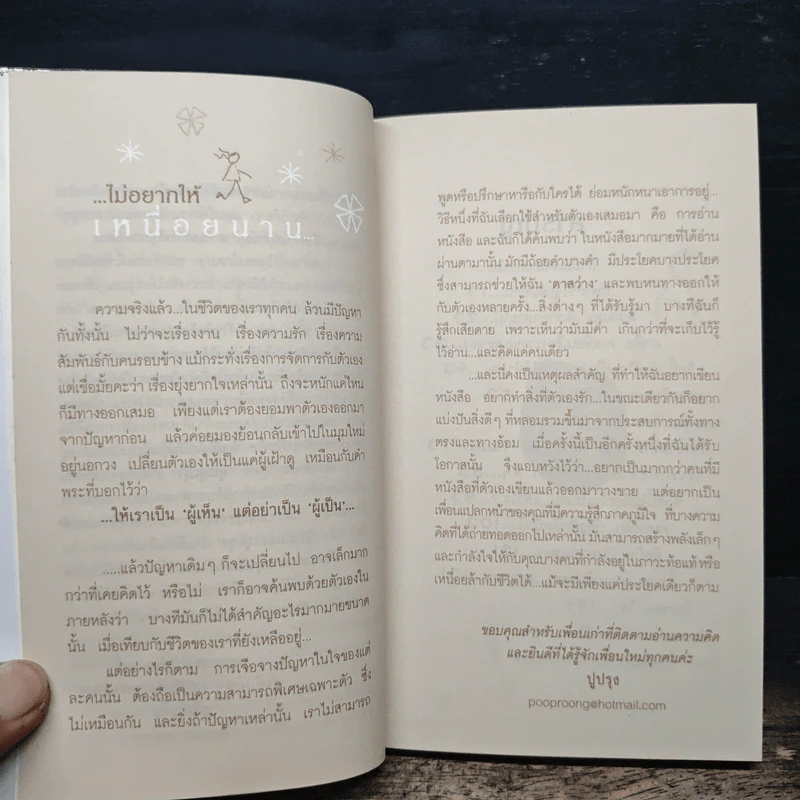 ...ไม่อยากให้
เหนื่อยนาน...
ความจริงแล้ว...ในชีวิตของเราทุกคน ล้วนมีปัญหา
กันทั้งนั้น ไม่ว่าจะเรื่องงาน เรื่องความรัก เรื่องความ
สัมพันธ์กับคนรอบข้าง แม้กระทั่งเรื่องการจัดการกับตัวเอง
แต่เชื่อมั้ยคะว่า เรื่องยุ่งยากใจเหล่านั้น ถึงจะหนักแค่ไหน
ก็มีทางออกเสมอ เพียงแต่เราต้องยอมพาตัวเองออกมา
จากปัญหาก่อน แล้วค่อยมองย้อนกลับเข้าไปในมุมใหม่
อยู่นอกวง เปลี่ยนตัวเองให้เป็นแค่ผู้เฝ้าดู เหมือนกับคำ
พระที่บอกไว้ว่า
...ให้เราเป็น 'ผู้เห็น' แต่อย่าเป็น 'ผู้เป็น'...
.....แล้วปัญหาเดิมๆ ก็จะเปลี่ยนไป อาจเล็กมาก
กว่าที่เคยคิดไว้ หรือไม่ เราก็อาจค้นพบด้วยตัวเองใน
ภายหลังว่า บางทีมันก็ไม่ได้สำคัญอะไรมากมายขนาด
นั้น เมื่อเทียบกับชีวิตของเราที่ยังเหลืออยู่...
แต่อย่างไรก็ตาม การเจือจางปัญหาในใจของแต่
ละคนนั้น ต้องถือเป็นความสามารถพิเศษเฉพาะตัว ซึ่ง
ไม่เหมือนกัน และยิ่งถ้าปัญหาเหล่านั้น เราไม่สามารถ
พูดหรือปรึกษาหารือกับใครได้ ย่อมหนักหนาเอาการอยู่...
วิธีหนึ่งที่ฉันเลือกใช้สำหรับตัวเองเสมอมา คือ การอ่าน
หนังสือ และฉันก็ได้ค้นพบว่า ในหนังสือมากมายที่ได้อ่าน
ผ่านตามานั้น มักมีถ้อยคำบางคำ มีประโยคบางประโยค
ซึ่งสามารถช่วยให้ฉัน 'ตาสว่าง' และพบหนทางออกให้
กับตัวเองหลายครั้ง...สิ่งต่างๆ ที่ได้รับรู้มา บางทีฉันก็
รู้สึกเสียดาย เพราะเห็นว่ามันมีค่า เกินกว่าที่จะเก็บไว้รู้
ไว้อ่าน...และคิดแค่คนเดียว
...และนี่คงเป็นเหตุผลสำคัญ ที่ทำให้ฉันอยากเขียน
หนังสือ อยากทำสิ่งที่ตัวเองรัก...ในขณะเดียวกันก็อยาก
แบ่งปันสิ่งดีๆ ที่หลอมรวมขึ้นมาจากประสบการณ์ทั้งทาง
ตรงและทางอ้อม เมื่อครั้งนี้เป็นอีกครั้งหนึ่งที่ฉันได้รับ
โอกาสนั้น จึงแอบหวังไว้ว่า...อยากเป็นมากกว่าคนที่มี
หนังสือที่ตัวเองเขียนแล้วออกมาวางขาย แต่อยากเป็น
เพื่อนแปลกหน้าของคุณที่มีความรู้สึกภาคภูมิใจ ที่บางความ
คิดที่ได้ถ่ายทอดออกไปเหล่านั้น มันสามารถสร้างพลังเล็กๆ
และกำลังใจให้กับคุณบางคนที่กำลังอยู่ในภาวะท้อแท้ หรือ
เหนื่อยล้ากับชีวิตได้...แม้จะมีเพียงแค่ประโยคเดียวก็ตาม
ขอบคุณสำหรับเพื่อนเก่าที่ติดตามอ่านความคิด
และยินดีที่ได้รู้จักเพื่อนใหม่ทุกคนค่ะ
ปูปรุง
pooproong@hotmail.com